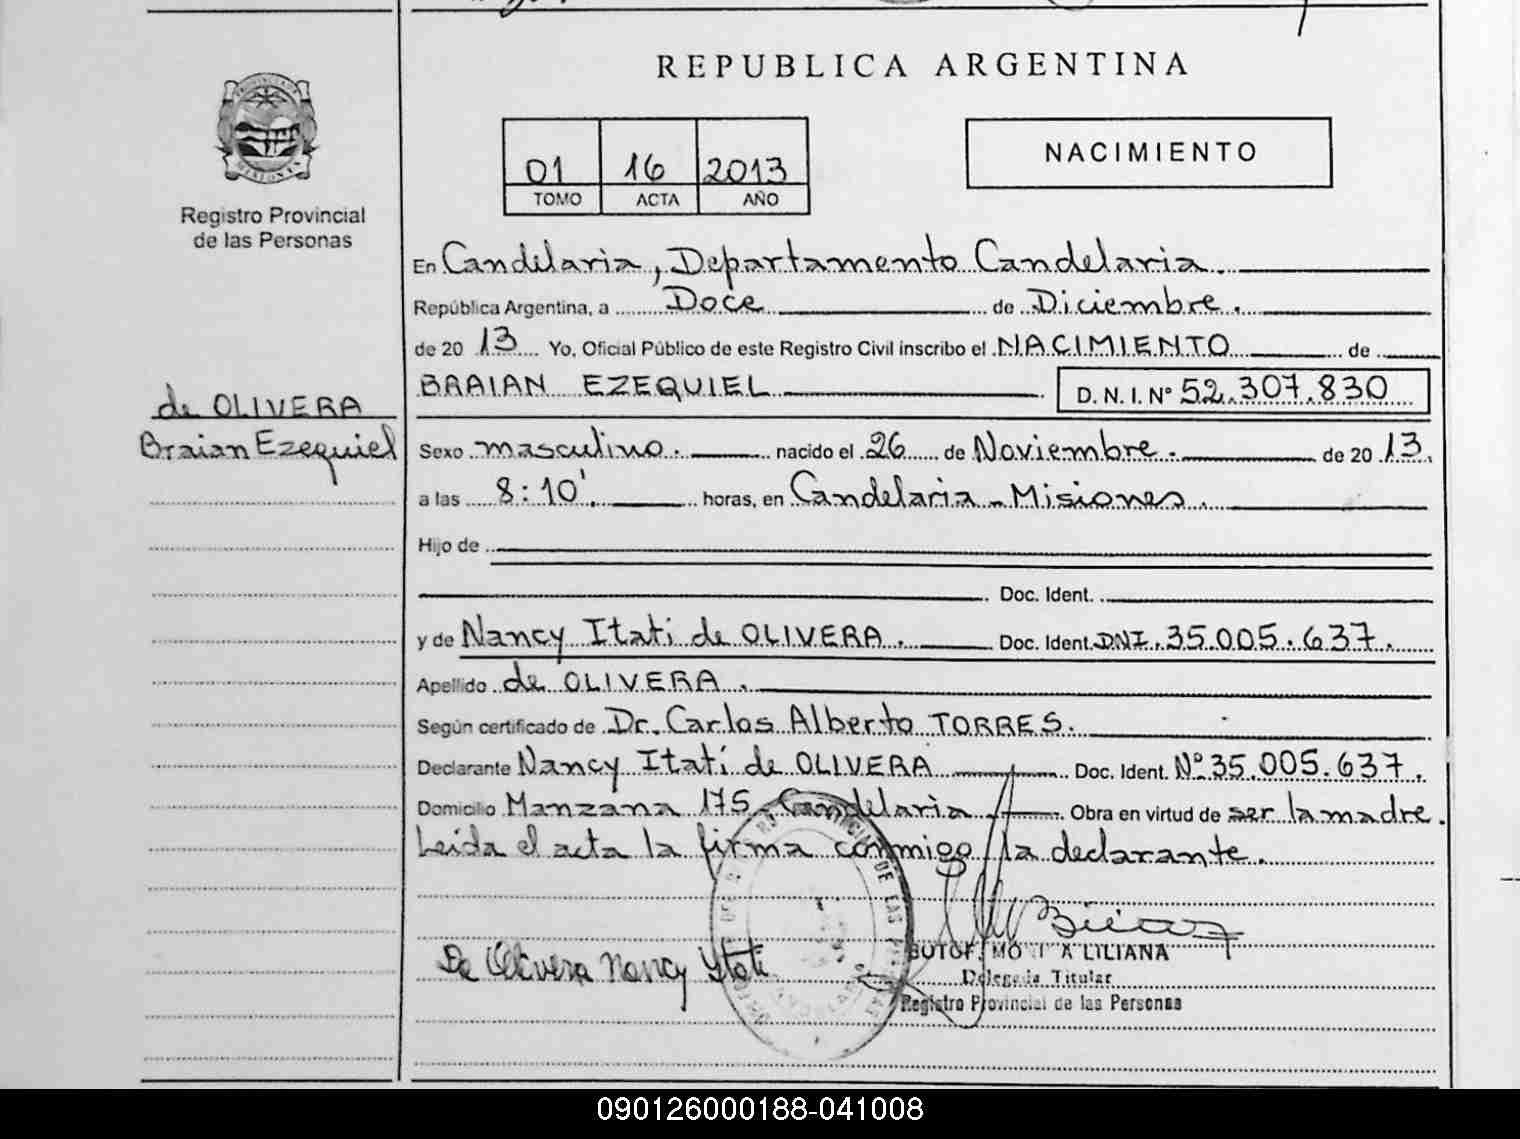 REPUBLICA ARGENTINA
PROVINCIA DE MISIONES
Registro Provincial
de las Personas
01 16 2013
TOMO ACTA AÑO
NACIMIENTO
En Candelaria, Departamento Candelaria.
República Argentina, a Doce de Diciembre.
de 20 13 Yo, Oficial Público de este Registro Civil inscribo el NACIMIENTO de
BRAIAN EZEQUIEL D. N. I. N° 52.307.830
de OLIVERA
Braian Ezequiel
Sexo masculino. nacido el 26 de Noviembre. de 20 13.
a las 8:10'. horas, en Candelaria - Misiones.
Hijo de
Doc. Ident.
y de Nancy Itati de OLIVERA. Doc. Ident. DNI. 35.005.637.
Apellido de OLIVERA.
Según certificado de Dr. Carlos Alberto TORRES.
Declarante Nancy Itatí de OLIVERA Doc. Ident. N° 35.005.637.
Domicilio Manzana 175 - Candelaria. Obra en virtud de ser la madre.
Leida el acta la firma conmigo la declarante.
De Olivera Nancy Itati
LILIANA
Delegada Titular
Registro Provincial de las Personas
090126000188-041008